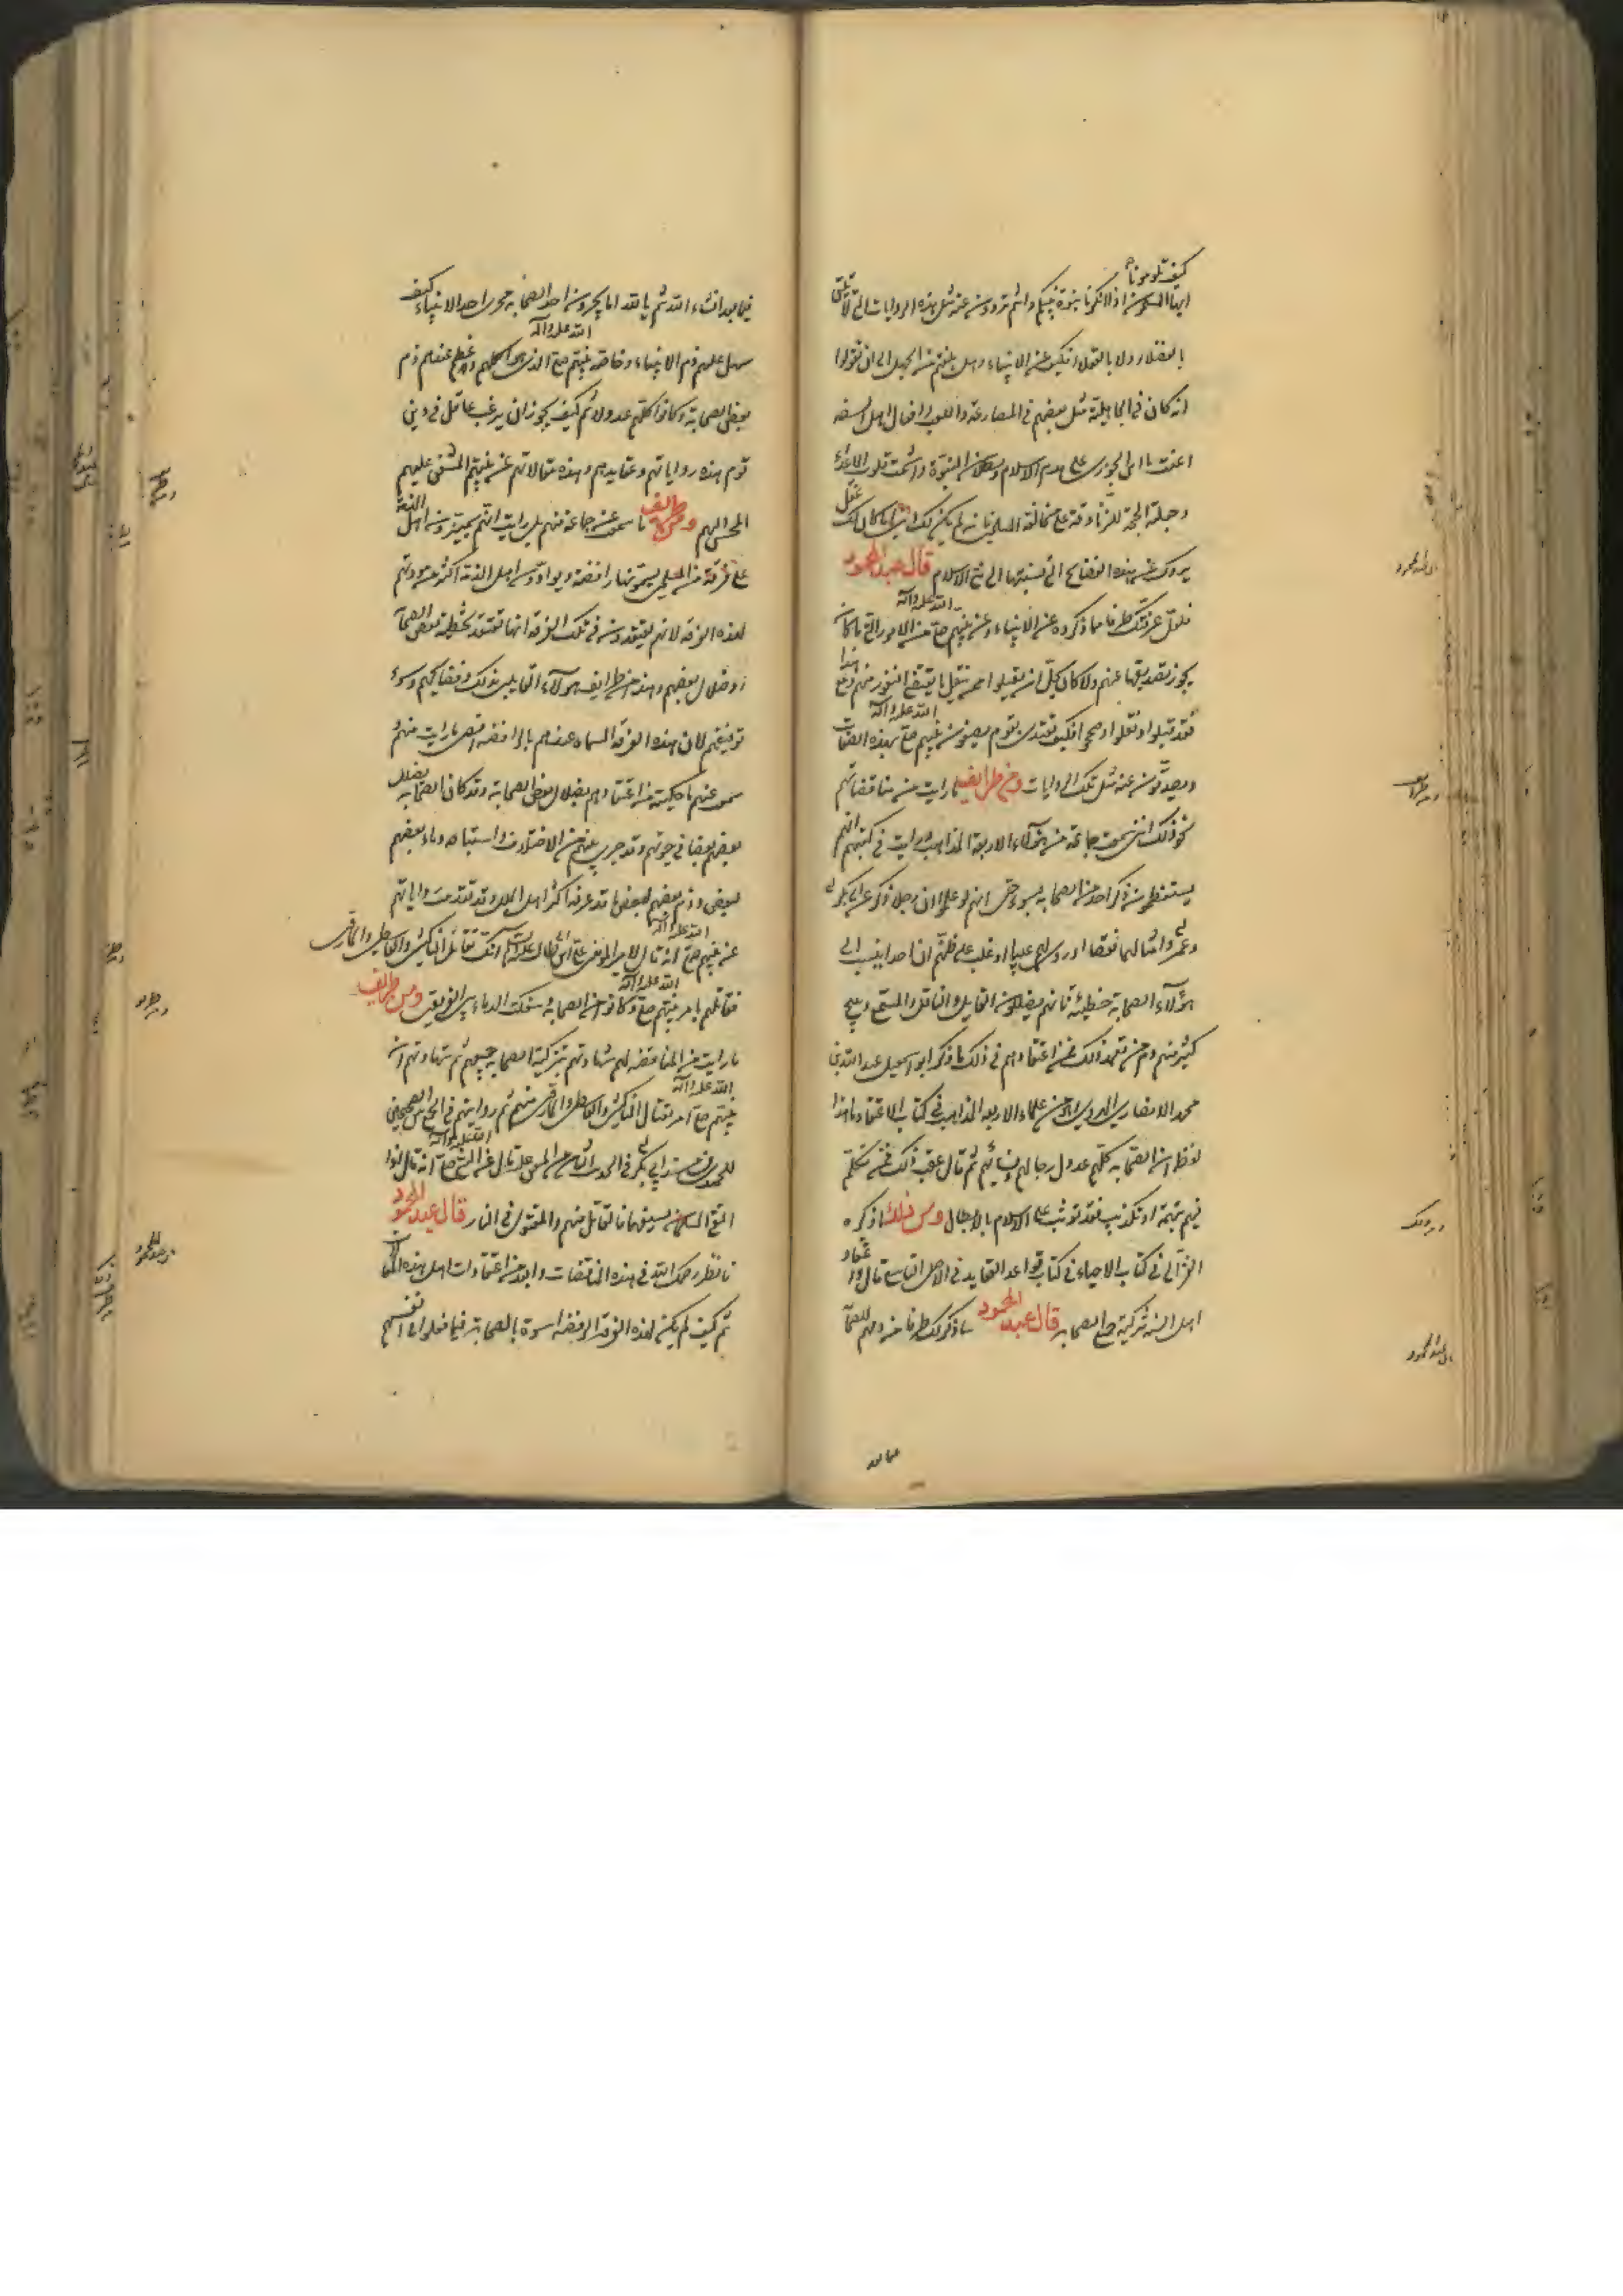 كيف تلومونا
ايها المسلمون اذا انكرنا نبوة نبيكم وانتم تروون عنه مثل هذه الروايات التي لا تليق
بالعقلاء ولا بالعقول فكيف عن الانبياء وهل بلغتم من الجهل الى ان تقولوا
انه كان في الجاهلية مثل بعضهم في المصارعة واللعب وافعال اهل السفه
اعنت يا ابن الجوزي على هدم الاسلام وبطلان النبوة واشمت قلوب الاعداء
وجعلت الحجة للزنادقة على مخالفة المسلمين فانه لم يكن لك عقل
يردك عن هذه الفضائح التي نسبتها الى نبي الاسلام قال عبد المحمود
فلقد عرفتك طرفا مما ذكروه عن الانبياء وعن نبيهم صلى الله عليه وآله من الامور التي ما كان
يجوز تصديقها عنهم ولا كان يحل ان يقبلوا ممن نقل ما يقتضي النفور منهم ومع هذا
فقد قبلوا ونقلوا وصححوا فكيف تقتدي بقوم يصفون نبيهم صلى الله عليه وآله بهذه الصفات
ويصدقون عنه مثل تلك الروايات ومن طرايف ما رايت من مناقضاتهم
في ذلك انني سمعت جماعة من هؤلاء الاربعة المذاهب ورايت في كتبهم انهم
يستعظمون ذكر احد من الصحابة بسوء حتى انهم لو علموا ان رجلا ذكر عن ابي بكر
وعمر وامثالهما نقصا او روى لهم عيبا او غلب على ظنهم ان احدا ينسب الى
هؤلاء الصحابة خطيئة فانهم يضللون القايل والناقل والمستمع ويبيح
كثير منهم دم من تعمد ذلك فمن اعتقادهم في ذلك ما ذكر ابو اسمعيل عبد الله بن
محمد الانصاري الهروي وهو من علماء الاربعة المذاهب في كتاب الاعتقاد ما هذا
لفظه ان الصحابة كلهم عدول رجالهم ونسائهم ثم قال عقيب ذلك فمن تكلم
فيهم بتهمة او تكذيب فقد توثب على الاسلام بالابطال ومن ذلك ما ذكره
الغزالي في كتاب الاحياء في كتاب قواعد العقايد في الاصل التاسع قال واعتقاد
اهل السنة تزكية جميع الصحابة قال عبد المحمود ساذكر لك طرفا من ذمهم للصحابة
فيما بعد انشاء الله ثم يا لله اما يجرون احد الصحابة مجرى احد الانبياء كيف
سهل عليهم ذم الانبياء وخاصة نبيهم صلى الله عليه وآله الذي هو اكملهم وعظم عندهم ذم
بعض الصحابة وكانوا كلهم عدولا ثم كيف يجوز ان يرغب عاقل في دين
قوم هذه رواياتهم وعقايدهم وهذه مقالاتهم عن نبيهم المشفق عليهم
المحسن اليهم ومن طرايف ما سمعت عن جماعة منهم بل رايت انهم يميزون اهل الذمة
على فرقة من المسلمين يسمونها رافضة ويوادون اهل الذمة اكثر من مودتهم
لهذه الفرقة لانهم يعتقدون في تلك الفرقة انها تعتقد تخطئة بعض الصحابة
او ضلال بعضهم وهذه من طرايف هؤلاء القايلين بذلك وفضايحهم وسوء
توفيقهم لان هذه الفرقة المسماة عندهم بالرافضة اقصى ما رايت منهم و
سمعت عنهم ما حكيته من اعتقادهم بضلال بعض الصحابة وقد كان الصحابة يضلل
بعضهم بعضا في حيوتهم وقد جرى بينهم من الاختلاف واستباحة دماء بعضهم
لبعض وذم بعضهم لبعض ما قد عرفه اكثر اهل الملل وقد تقدمت رواياتهم
عن نبيهم صلى الله عليه وآله انه قال لامير المؤمنين علي بن ابي طالب عليه السلام انك تقاتل الناكثين والقاسطين والمارقين
فقاتلهم بامر نبيهم صلى الله عليه وآله وكانوا من الصحابة وسفكت الدماء بين الفريقين ومن طرايف
ما رايت من المناقضة لهم شهادتهم بتزكية الصحابة جميعهم ثم شهادتهم ان
نبيهم صلى الله عليه وآله امر بقتال الناكثين والقاسطين والمارقين منهم ثم روايتهم في الجمع بين الصحيحين
للحميدي من مسند ابي بكر في الحديث الثامن من المتفق عليه قال عن النبي صلى الله عليه وآله انه قال اذا
التقى المسلمان بسيفهما فالقاتل منهم والمقتول في النار قال عبد المحمود
فانظر رحمك الله في هذه المناقضات وابعد من اعتقادات اهل هذه
ثم كيف لم يكن لهذه الفرقة الرافضة اسوة بالصحابة فيما فعلوا في انفسهم